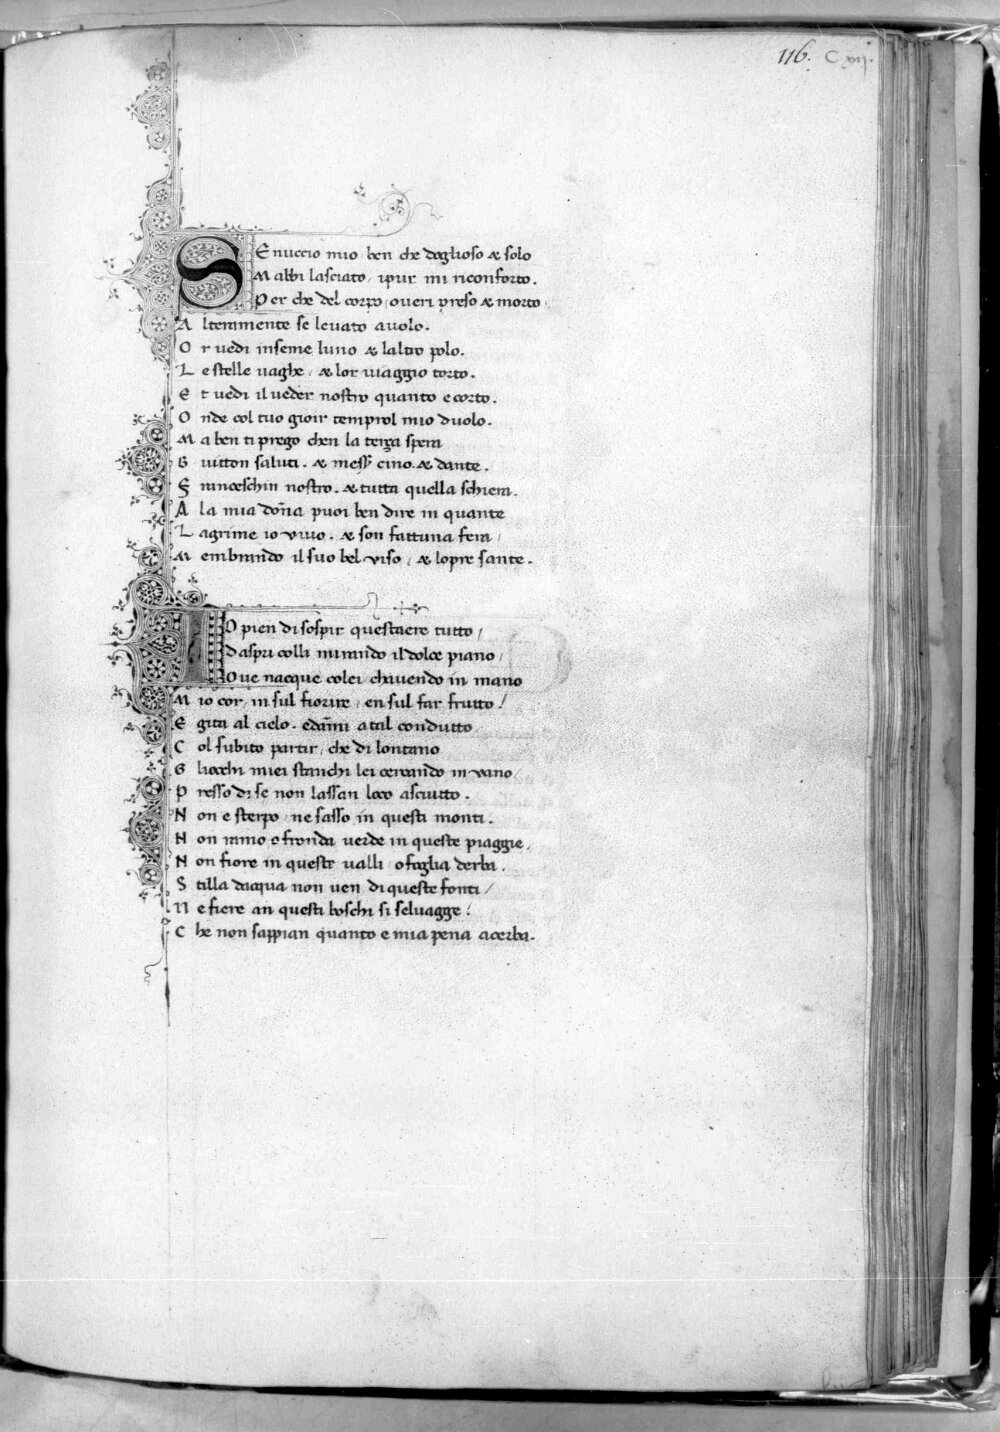 116. C xij.
SEnuccio mio ben che doglioso & solo
Mabbi lasciato, ipur mi riconforto.
Per che del corpo, oueri preso & morto
Alteramente se leuato auolo.
Or uedi inseme luno & laltro polo.
Le stelle uaghe, & lor uiaggio torto.
Et uedi il ueder nostro quanto e corto.
Onde col tuo gioir temprol mio duolo.
Ma ben ti prego chen la terza spera
Guitton saluti. & mess cino. & dante.
Franceschin nostro. & tutta quella schiera.
A la mia dona puoi ben dire in quante
Lagrime io viuo. & son fattuna fera,
Membrando il suo bel viso, & lopre sante.
IO pien di sospir questaere tutto,
Daspri colli mirando il dolce piano,
Oue nacque colei chauendo in mano
Mio cor, in sul fiorire, en sul far frutto!
E gita al cielo. edami atal condutto
Col subito partir, che di lontano
Gliocchi miei stanchi lei cercando in vano,
Presso di se non lassan loco asciutto.
Non e sterpo, ne sasso in questi monti.
Non ramo o fronda uerde in queste piaggie,
Non fiore in queste ualli, o foglia derba.
Stilla dacqua non uen di queste fonti,
Ne fiere an questi boschi si seluagge!
Che non sappian quanto e mia pena acerba.